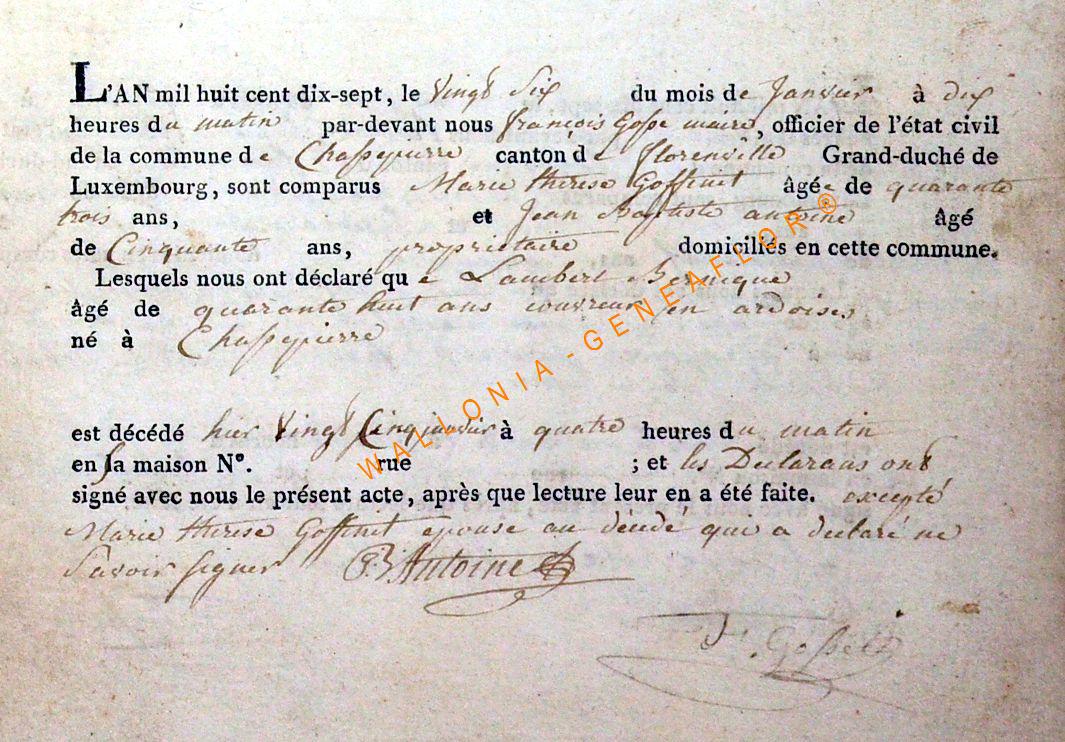 L'AN mil huit cent dix-sept, le vingt Six du mois de Janvier à dix
heures du matin par-devant nous françois Gosse maire, officier de l'état civil
de la commune de Chassepierre canton de florenville Grand-duché de
Luxembourg, sont comparus Marie therese Goffinet âgée de quarante
trois ans, et Jean Baptiste antoine âgé
de Cinquante ans, proprietaire domiciliés en cette commune.
Lesquels nous ont déclaré que Lambert
âgé de quarante huit ans couvreur en ardoises
né à Chassepierre
est décédé hier vingt Cinq janvier à quatre heures du matin
en sa maison N°. rue ; et les Declarans ont
signé avec nous le présent acte, après que lecture leur en a été faite. excepté
Marie therese Goffinet epouse au décédé qui a declaré ne
Savoir signer JB Antoine
F. Gosse
WALLONIA-GENEAFLOR®